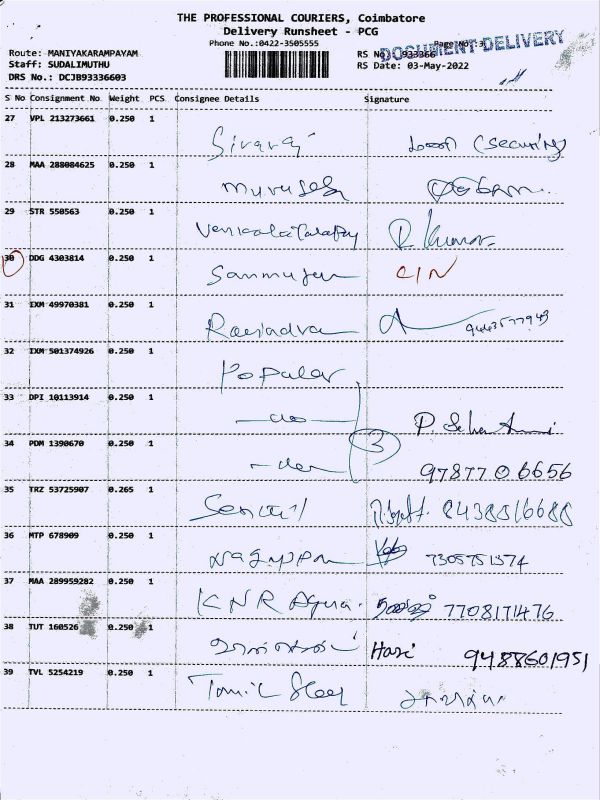 THE PROFESSIONAL COURIERS, Coimbatore
Delivery Runsheet - PCG
Phone No.:0422-3505555
Page No.:3
DOCUMENT DELIVERY
Route: MANIYAKARAMPAYAM
RS No.: 933366
Staff: SUDALIMUTHU
RS Date: 03-May-2022
DRS No.: DCJB93336603
S No Consignment No. Weight PCS Consignee Details Signature
27 VPL 213273661 0.250 1 Sivaraj (Security)
28 MAA 288084625 0.250 1
29 STR 550563 0.250 1 R Kumar
30 DDG 4303814 0.250 1 C/N
31 IXM 49970381 0.250 1 Ravindra 9443577943
32 IXM 501374926 0.250 1 Popular
33 DPI 10113914 0.250 1 -do-
34 PDM 1390670 0.250 1 -do- 3 9787706656
35 TRZ 53725907 0.265 1 8438816688
36 MTP 678909 0.250 1 7305751374
37 MAA 289959282 0.250 1 KNR 7708171476
38 TUT 160526 0.250 1 Hari 9488601951
39 TVL 5254219 0.250 1 Tamil